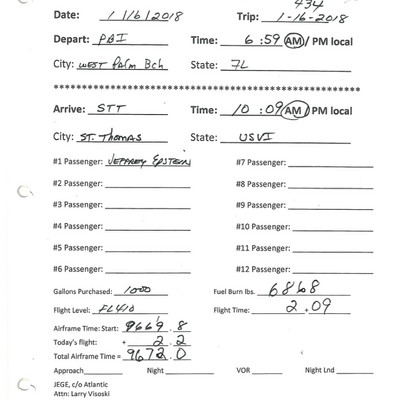 434
Date: 1/16/2018 Trip: 1-16-2018
Depart: PBI Time: 6:59 AM / PM local
City: WEST Palm Bch State: FL
************************************************
Arrive: STT Time: 10:09 AM / PM local
City: ST. Thomas State: USVI
#1 Passenger: JEFFREY EPSTEIN #7 Passenger:
#2 Passenger: #8 Passenger:
#3 Passenger: #9 Passenger:
#4 Passenger: #10 Passenger:
#5 Passenger: #11 Passenger:
#6 Passenger: #12 Passenger:
Gallons Purchased: 1000 Fuel Burn lbs. 6868
Flight Level: FL410 Flight Time: 2+09
Airframe Time: Start: 9669.8
Today's flight: + 2.2
Total Airframe Time = 9672.0
Approach Night VOR Night Lnd
JEGE, c/o Atlantic
Attn: Larry Visoski